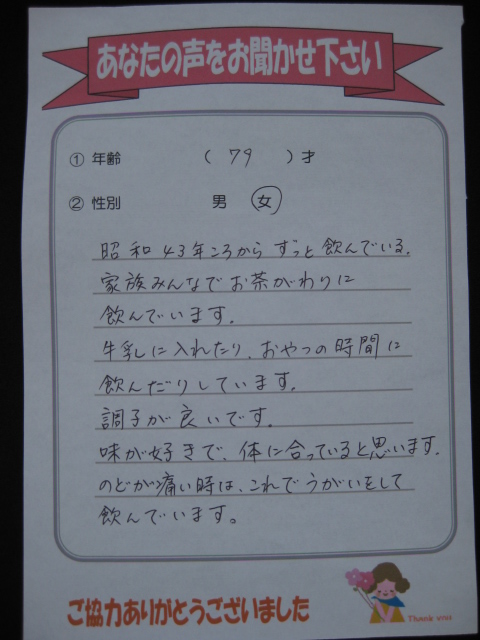 あなたの声をお聞かせ下さい
① 年齢 ( 79 ) 才
② 性別 男 女
昭和43年ころから ずっと飲んでいる.
家族みんなでお茶がわりに
飲んでいます.
牛乳に入れたり、おやつの時間に
飲んだりしています.
調子が良いです.
味が好きで、体に合っていると思います.
のどが痛い時は、これでうがいをして
飲んでいます。
ご協力ありがとうございました
Thank you